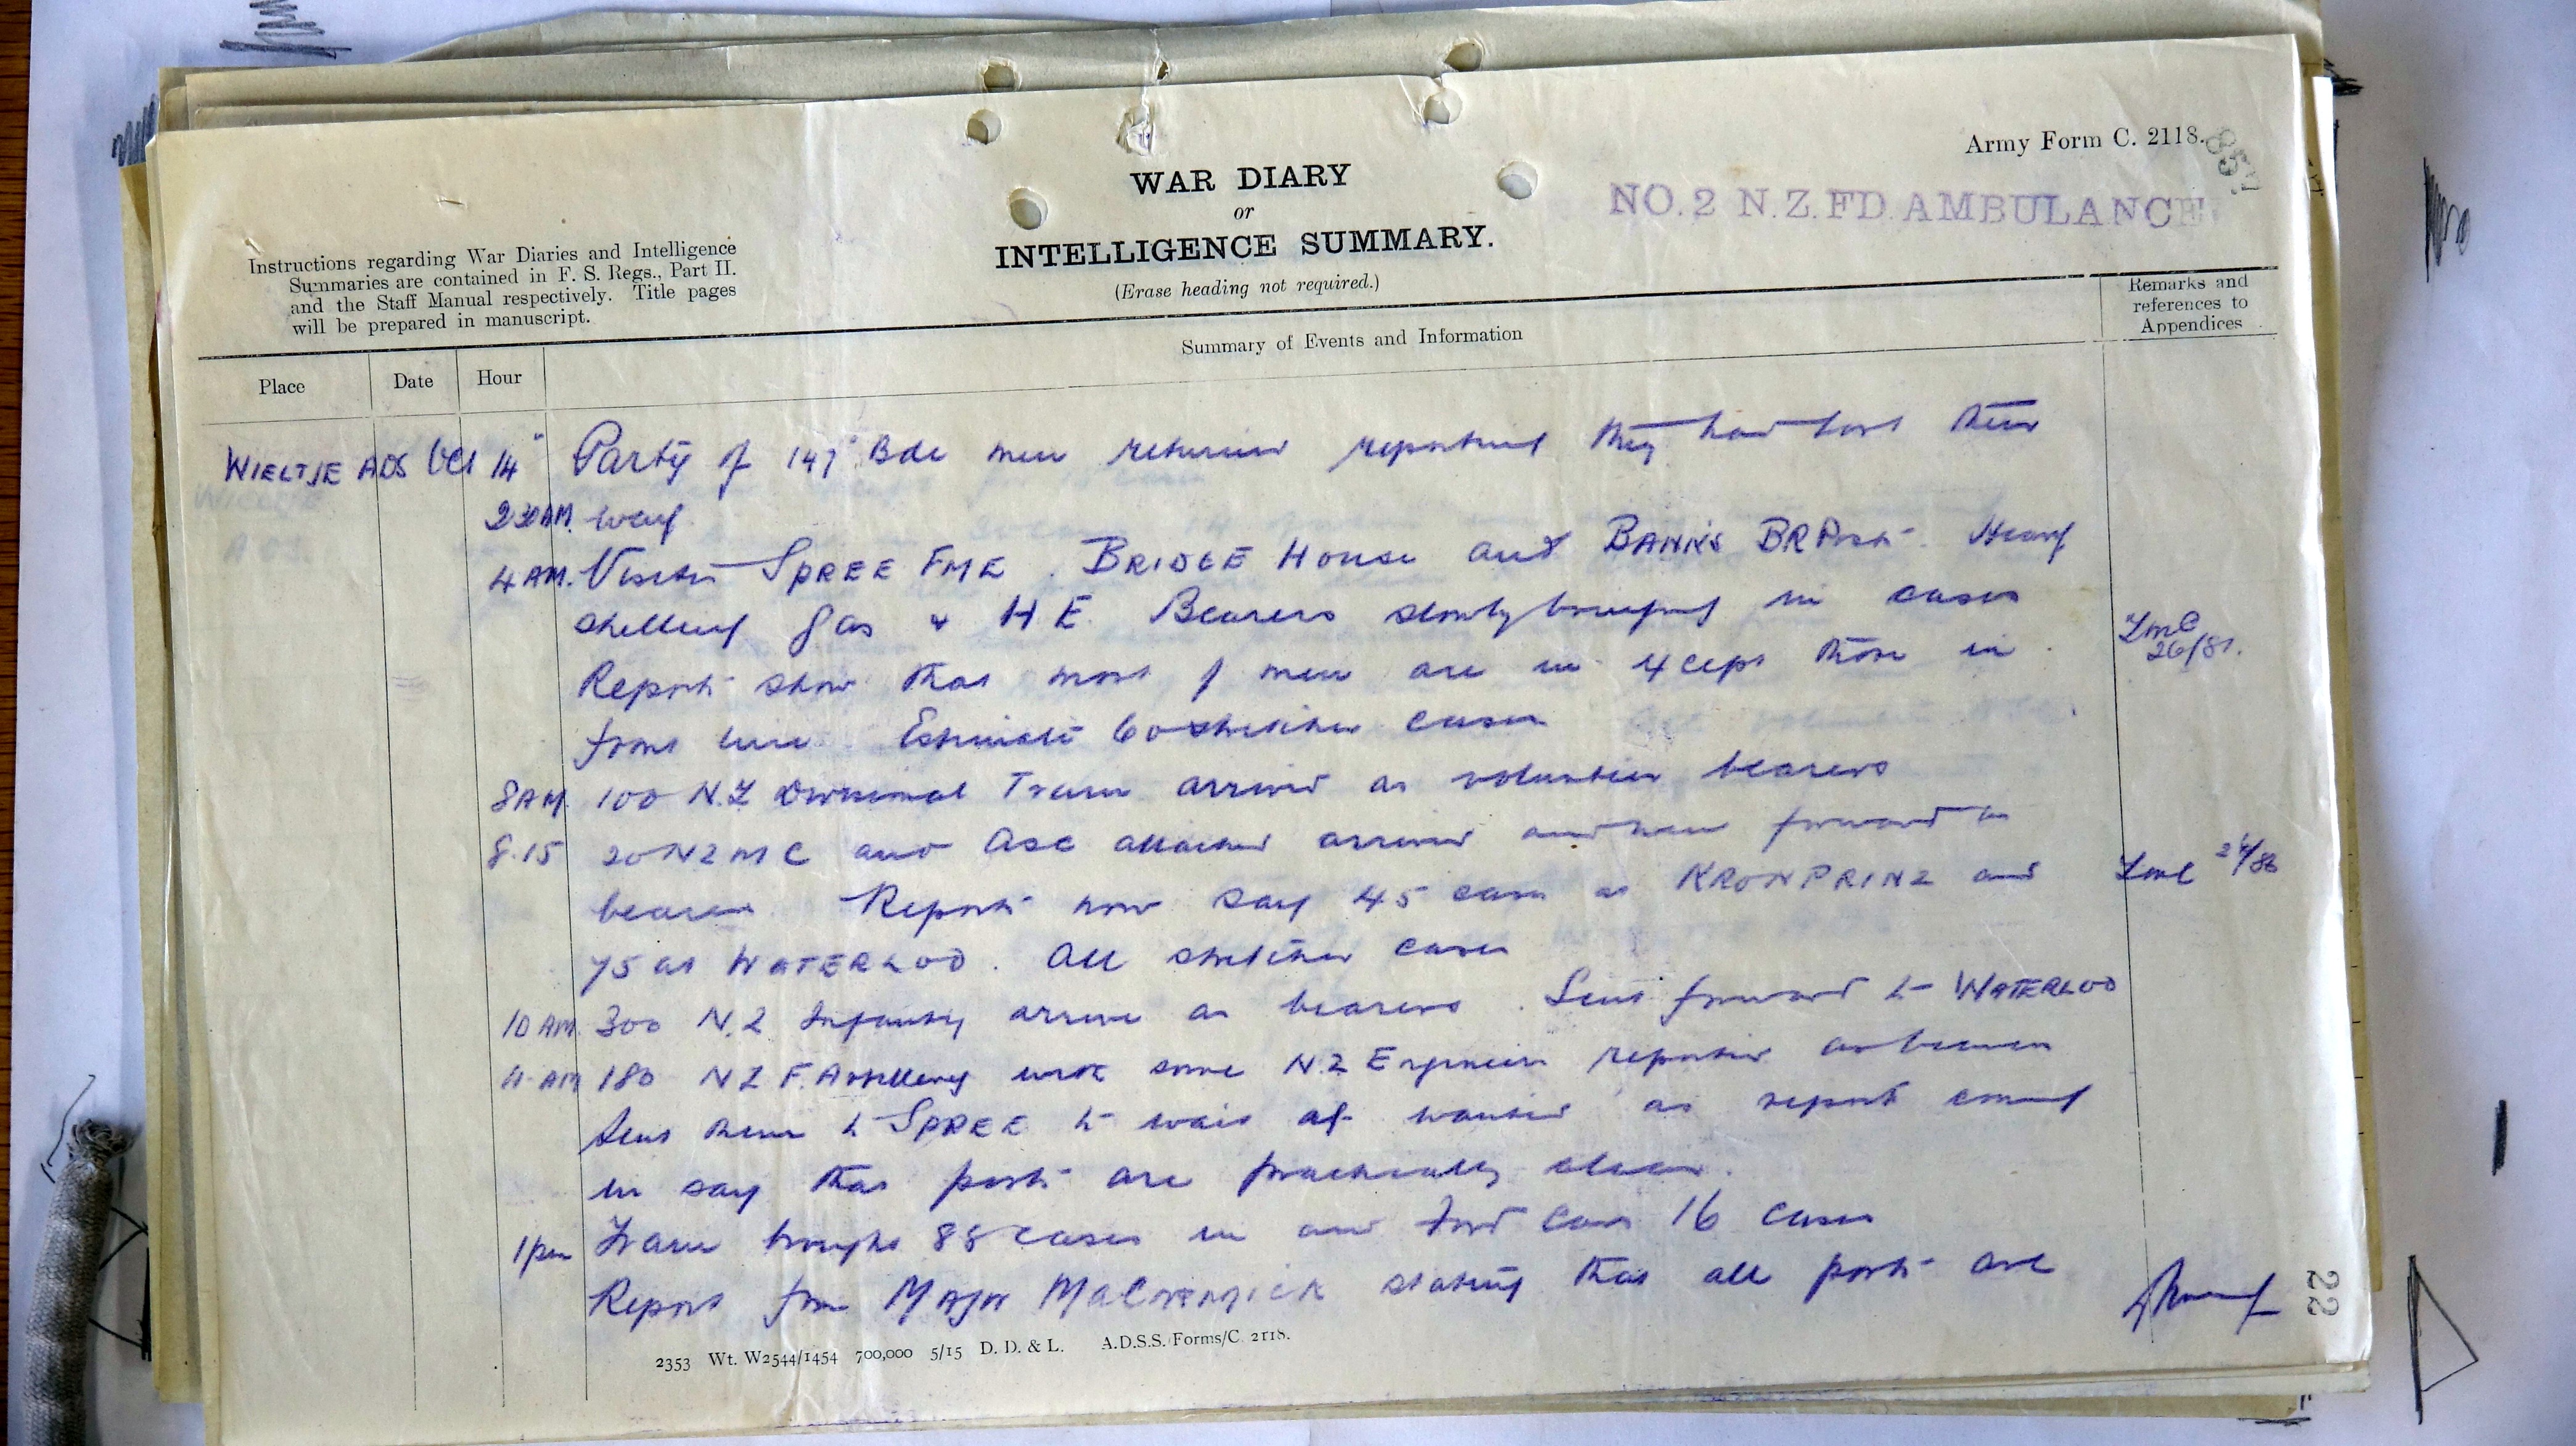 Army Form C. 2118.
857
WAR DIARY
or
INTELLIGENCE SUMMARY.
(Erase heading not required.)
NO. 2 N.Z. FD. AMBULANCE
Instructions regarding War Diaries and Intelligence
Summaries are contained in F. S. Regs., Part II.
and the Staff Manual respectively. Title pages
will be prepared in manuscript.
Place Date Hour Summary of Events and Information
Remarks and
references to
Appendices
WIELTJE ADS Oct 14" Party of 147" Bde men returned reporting they had lost their
2 30 AM. way.
4 AM. Visited SPREE FME. BRIDGE House and BANKS BR Post. Heavy
shelling gas & H E. Bearers slowly bringing in cases
26/81.
Reports show that most of men are in 4 cept those in
front line. Estimate 60 stretcher cases
8 AM. 100 N.Z Divisional Train arrived as volunteer bearers
8.15 20 NZMC and ASC attached arrived and went forward as
bearers. Reports now say 45 cases at KRONPRINZ and
75 at WATERLOO. All stretcher cases
10 AM. 300 N.Z Infantry arrive as bearers. Sent forward to WATERLOO
11 AM 180 NZ F. Artillery with some N.Z Engineers reported as bearers
Sent them to SPREE to wait if wanted as reports coming
in say that posts are practically clear.
1 pm Train brought 88 cases in and Ford Cars 16 cases
Report from Major MacCormick stating that all posts are
22
2353 Wt. W2544/1454 700,000 5/15 D. D. & L. A.D.S.S./Forms/C. 2118.